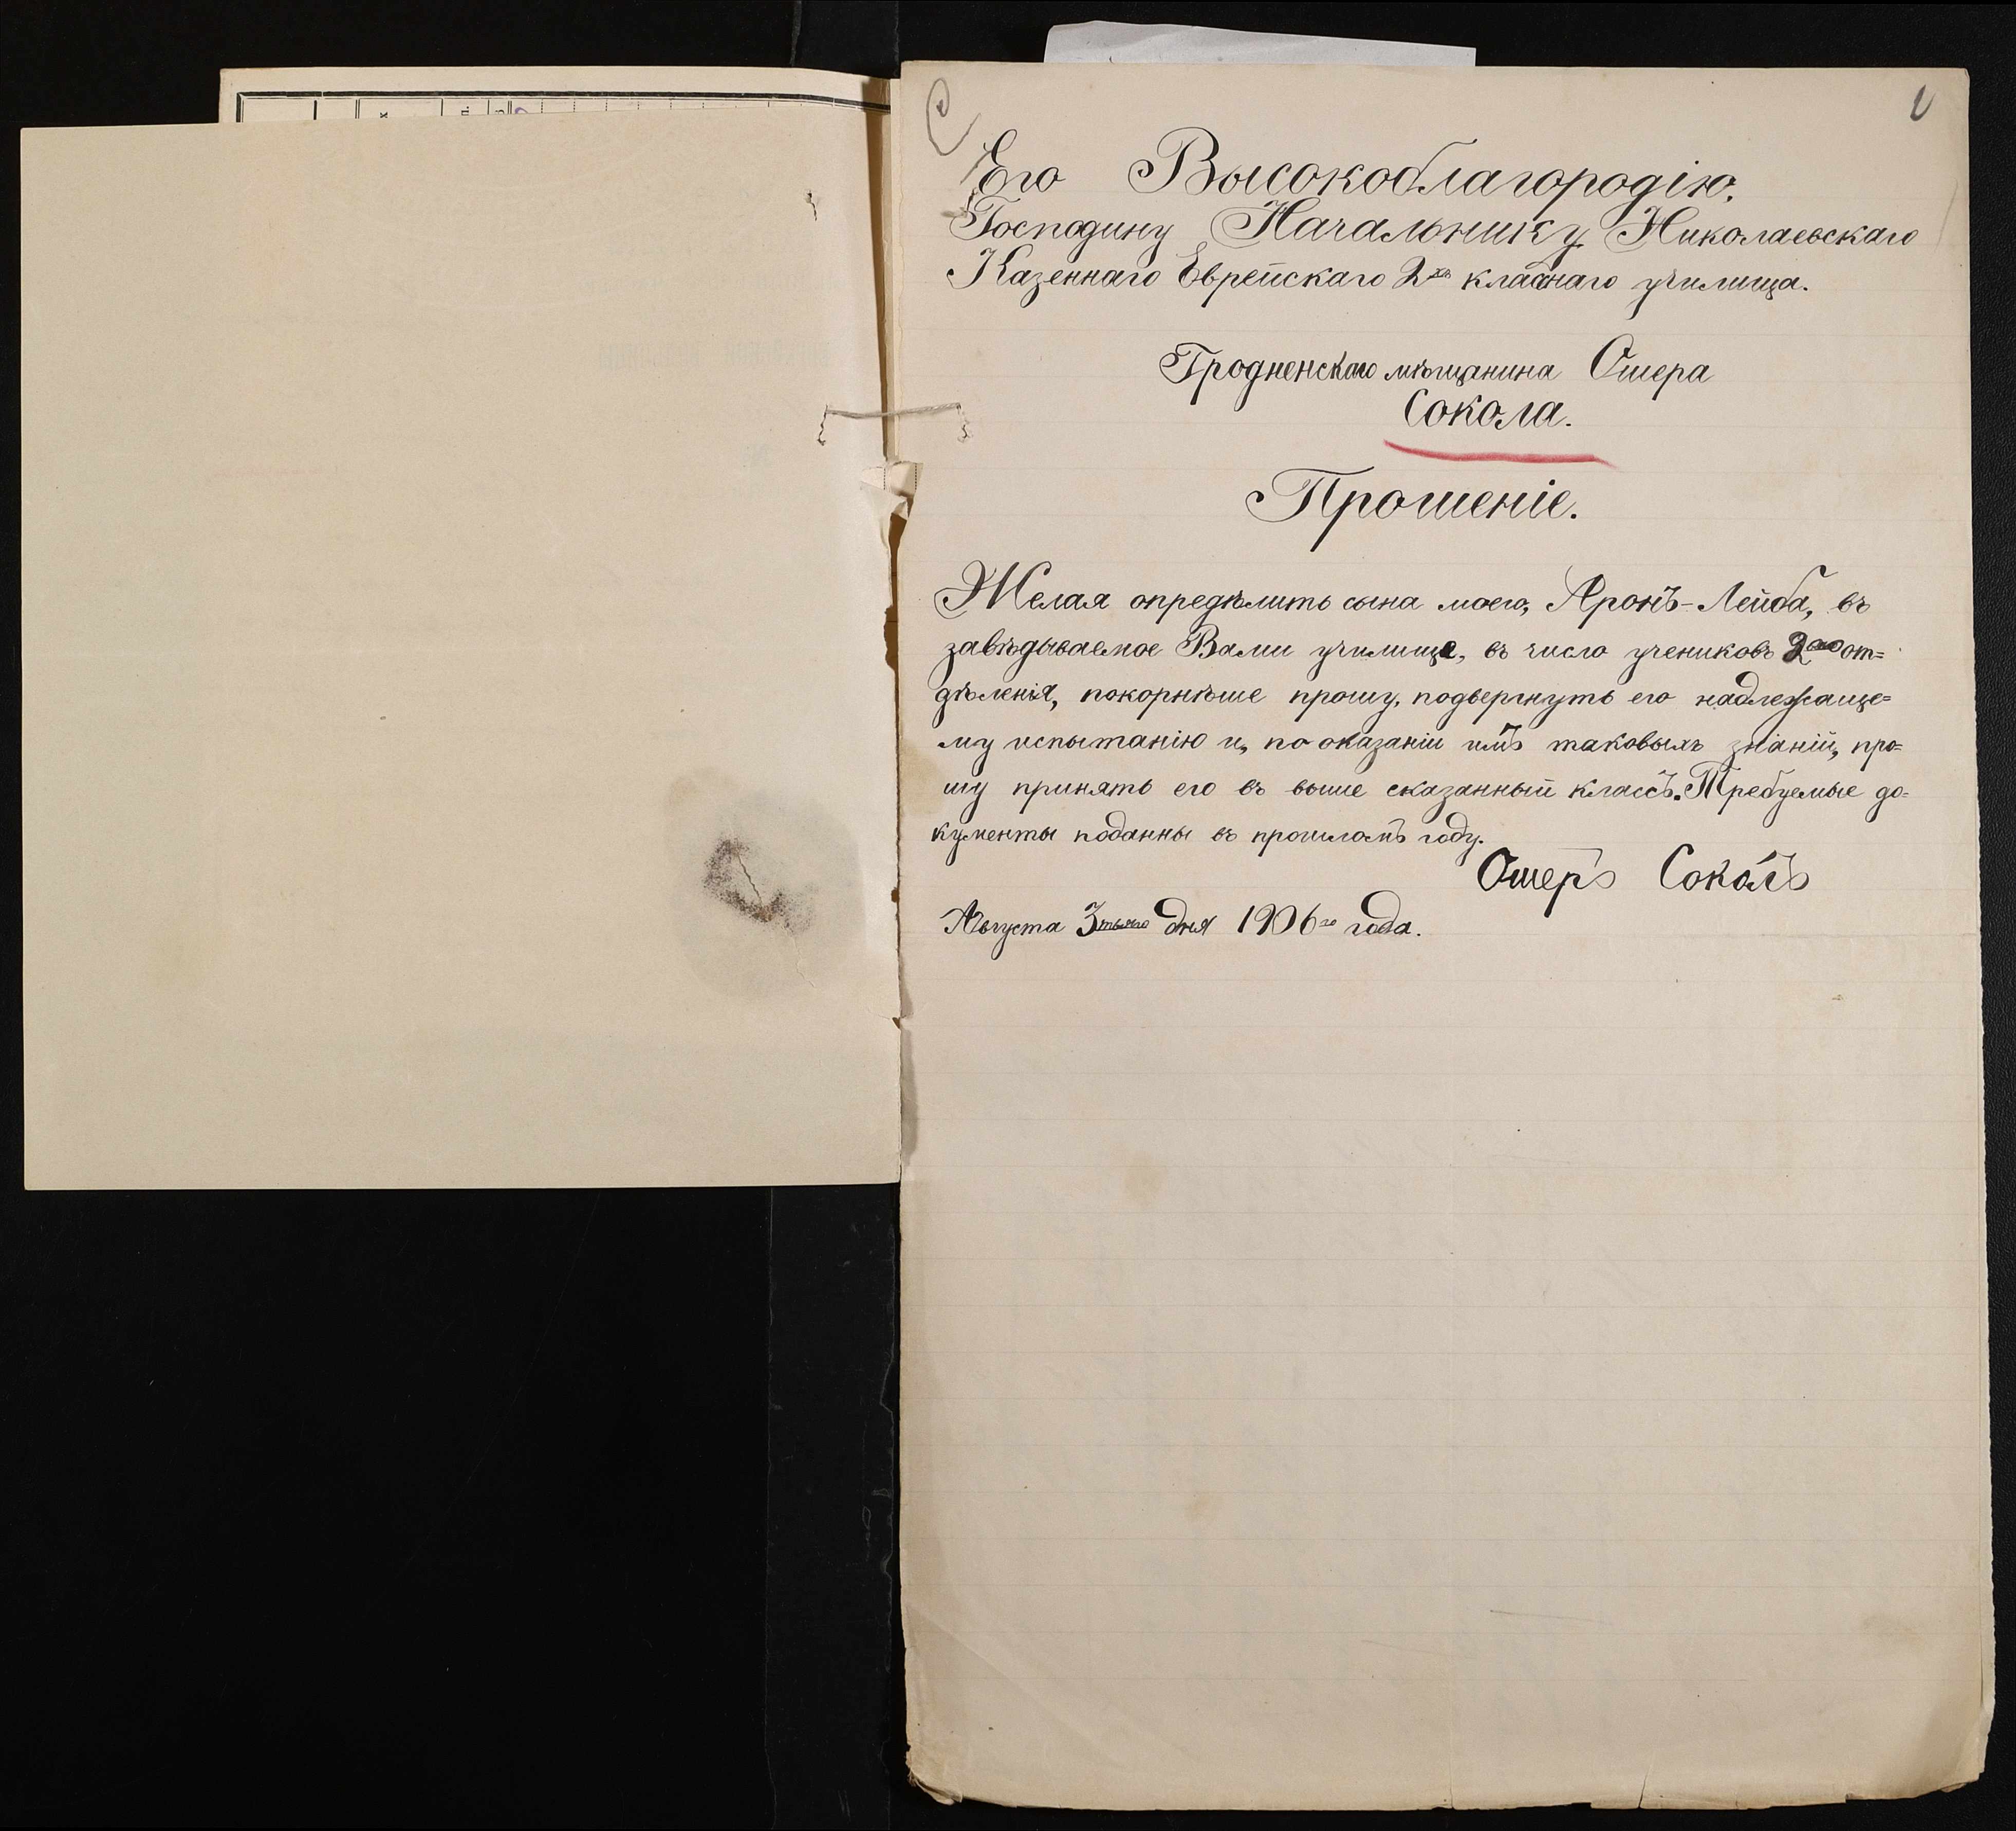 Его Высокоблагородію,
Господину Начальнику Николаевскаго
Казеннаго Еврейскаго 2хъ класнаго училища.
Гродненскаго мѣщанина Ошера
Сокола.
Прошеніе.
Желая опредѣлить сына моего, Аронъ-Лейба, въ
завѣдываемое Вами училище, въ число учениковъ 2го от=
дѣленія, покорнѣше прошу, подвергнуть его надлежаще=
му испытанію и, по оказаніи имъ таковыхъ знаній, про=
шу принять его въ выше сказанный классъ. Требуемые до=
кументы поданны въ прошломъ году.
Ошеръ Соколъ
Августа 3тьяго дня 1906го года.